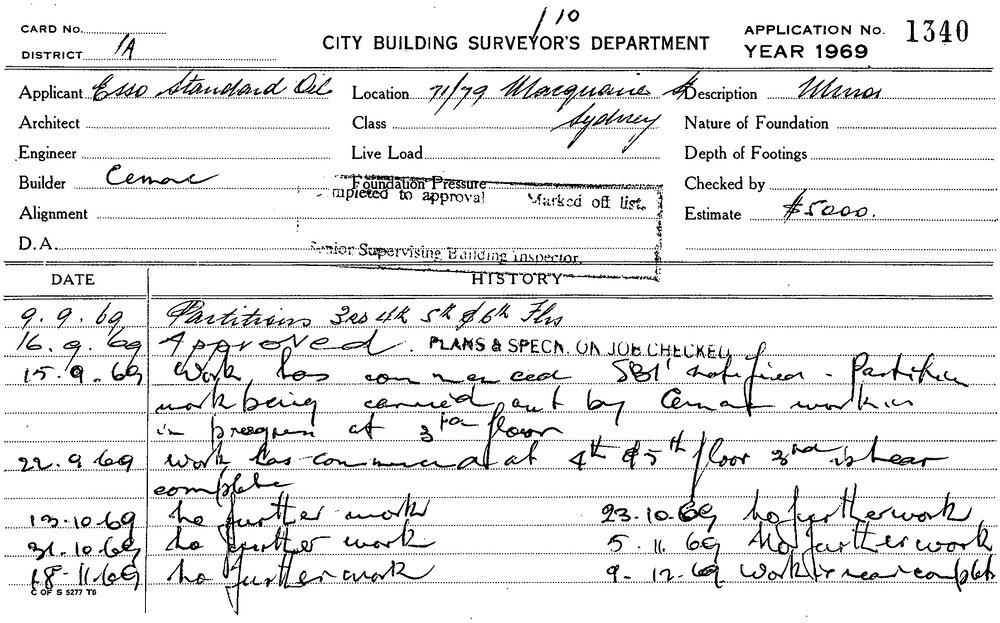 1/10
CARD No.
DISTRICT 1A
CITY BUILDING SURVEYOR'S DEPARTMENT
APPLICATION No. 1340
YEAR 1969
Applicant Esso Standard Oil Location 71/79 Macquarie St Description Minor
Architect Class Sydney Nature of Foundation
Engineer Live Load Depth of Footings
Builder Cemac Foundation Pressure Checked by
mpleted to approval Marked off list.
Alignment Estimate $5000.
D.A.
Senior Supervising Building Inspector.
DATE HISTORY
9.9.69 Partitions 3rd 4th 5th & 6th Flrs
16.9.69 Approved. PLANS & SPECN. ON JOB CHECKED
15.9.69 Work has commenced SBI notified - Partition
work being carried out by Cemac work is
in progress at 3rd floor
22.9.69 work has commenced at 4th & 5th floor 3rd is near
complete
13.10.69 no further work 23.10.69 no further work
31.10.69 no further work 5.11.69 No further work
18.11.69 no further work 9.12.69 work is near complete
C OF S 5277 T6